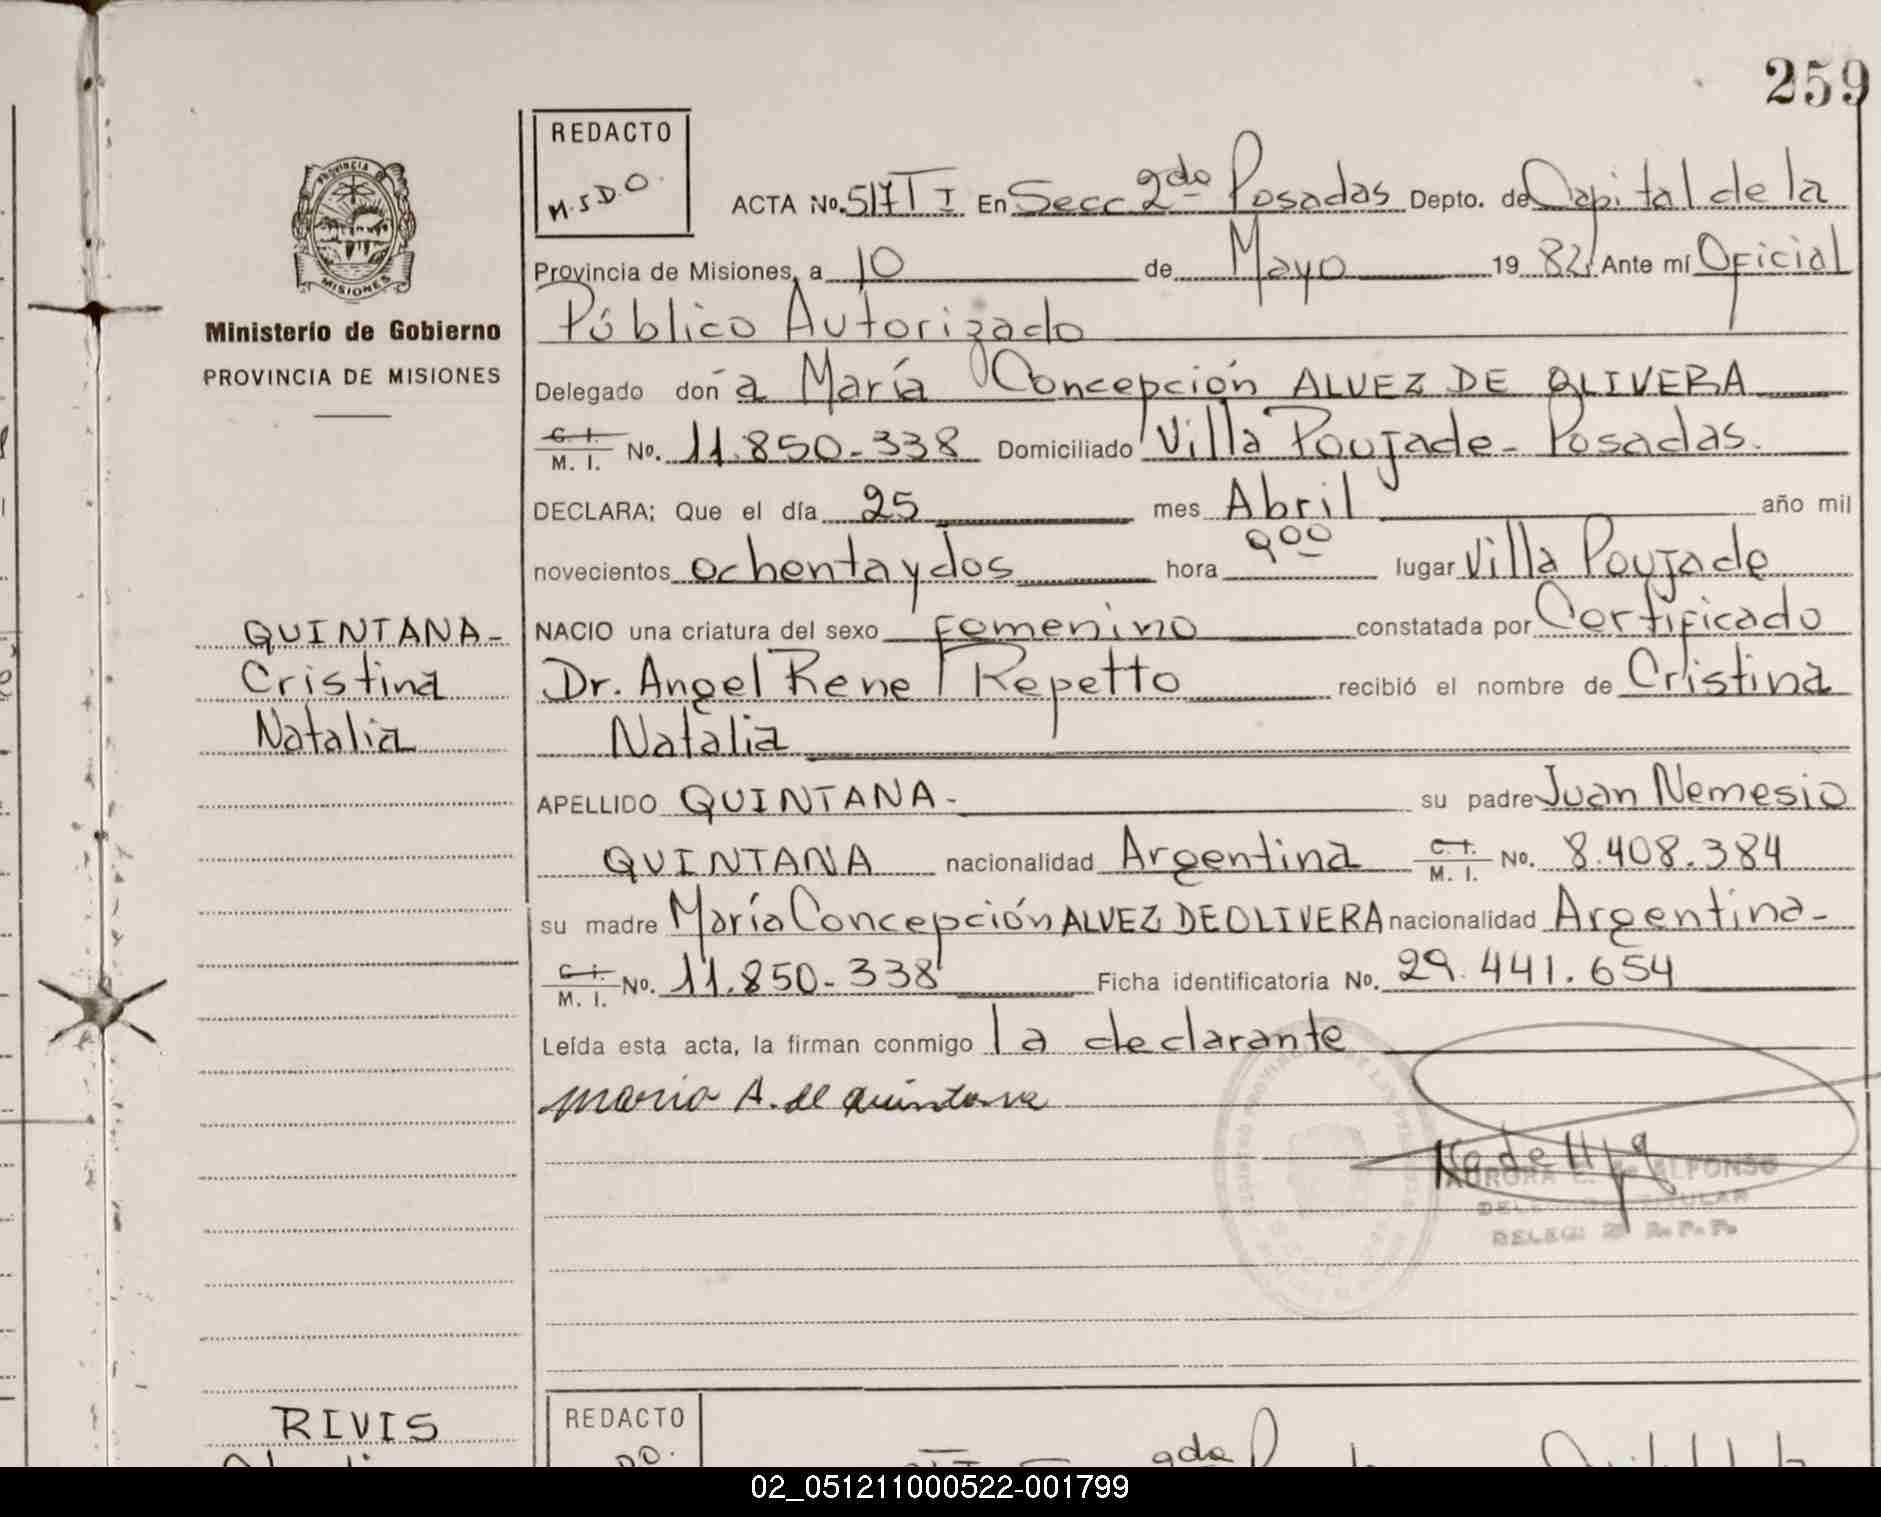 259
REDACTO
M.S.D.O.
PROVINCIA DE
MISIONES
ACTA No. 517 T I En Secc 2da Posadas Depto. de Capital de la
Provincia de Misiones, a 10 de Mayo 1982 Ante mí Oficial
Ministerio de Gobierno
Público Autorizado
PROVINCIA DE MISIONES
Delegado doña María Concepción ALVEZ DE OLIVERA
C. I. / M. I. No. 11.850-338 Domiciliado Villa Poujade - Posadas.
DECLARA; Que el día 25 mes Abril año mil
novecientos ochenta y dos hora 9 00 lugar Villa Poujade
QUINTANA-
NACIO una criatura del sexo Femenino constatada por Certificado
Cristina
Dr. Angel Rene Repetto recibió el nombre de Cristina
Natalia
Natalia
APELLIDO QUINTANA - su padre Juan Nemesio
QUINTANA nacionalidad Argentina C. I. / M. I. No. 8.408.384
su madre María Concepción ALVEZ DE OLIVERA nacionalidad Argentina-
C. I. / M. I. No. 11.850-338 Ficha identificatoria No. 29.441.654
Leída esta acta, la firman conmigo la declarante
Maria A. de Quintana
AURORA E. de ALFONSO
DELEGADO TITULAR
DELEG. 2ª R.P.P.
RIVIS
REDACTO
DO.
02_051211000522-001799